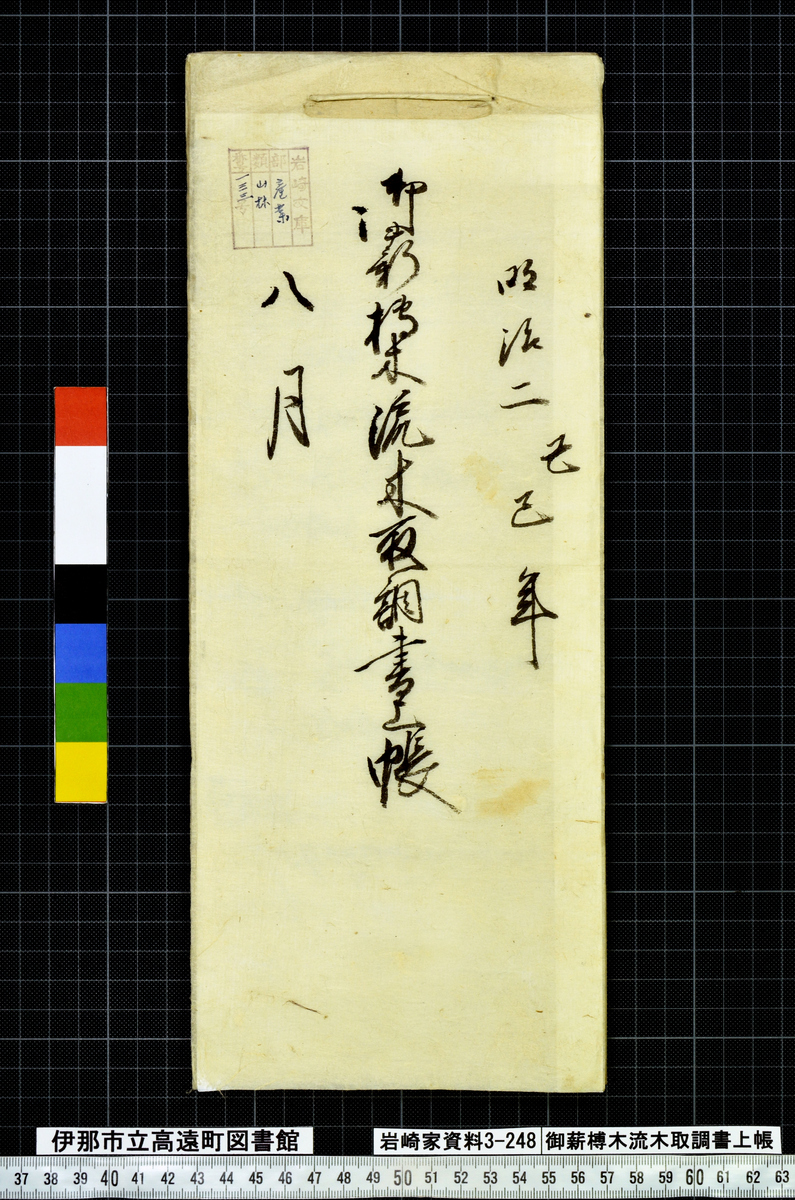 明治二己巳年
御薪榑木流木取調書上帳
八月
岩崎文庫
部 産業
類 山林
一三三号
伊那市立高遠町図書館
岩崎家資料3-248
御薪榑木流木取調書上帳
37 38 39 40 41 42 43 44 45 46 47 48 49 50 51 52 53 54 55 56 57 58 59 60 61 62 63